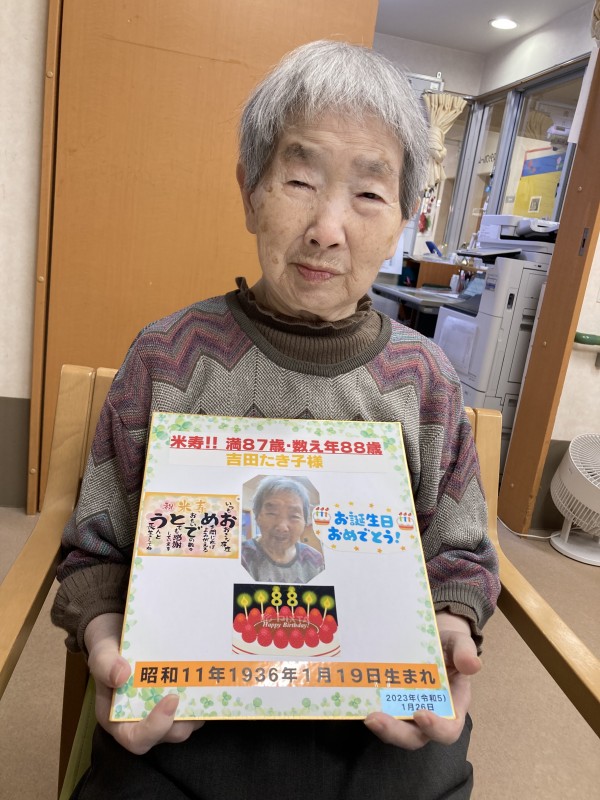 米寿!! 満87歳・数え年88歳
吉田たき子様
祝 米寿
おめでとう
お誕生日
おめでとう!
88
Happy Birthday
昭和11年1936年1月19日生まれ
2023年(令和5)
1月26日